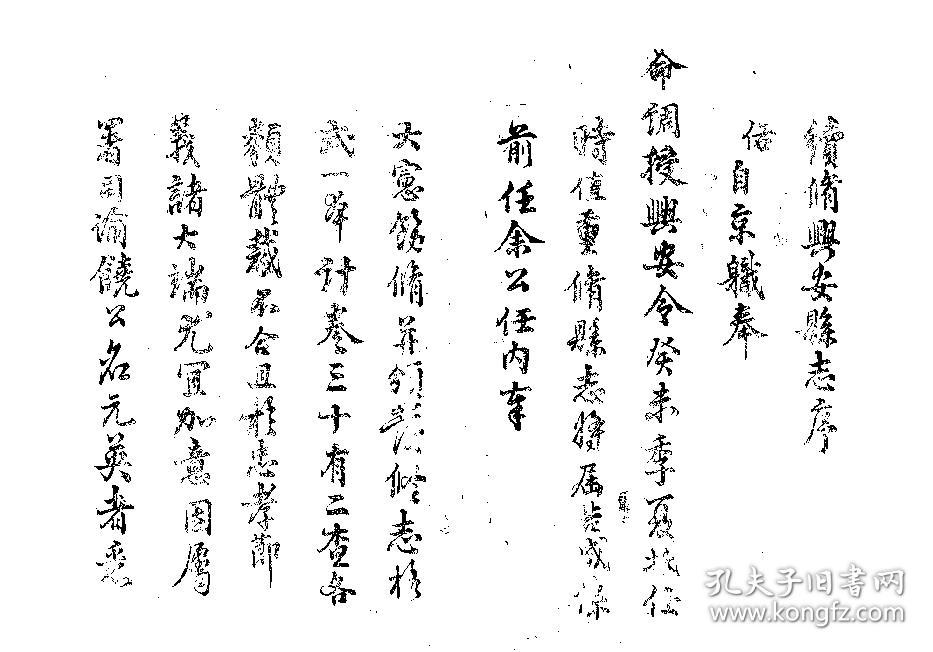 續脩興安縣志序
伍自京職奉
命調授興安令癸未季夏抵任
時值重脩縣志將屆告成係
前任余公任内奉
大憲飭脩并頒發脩志格
式一本計卷三十有二查各
類體裁不合且於忠孝節
義諸大端尤宜加意因屬
署因諭饒公名元英者悉
孔夫子旧书网
www.kongfz.com